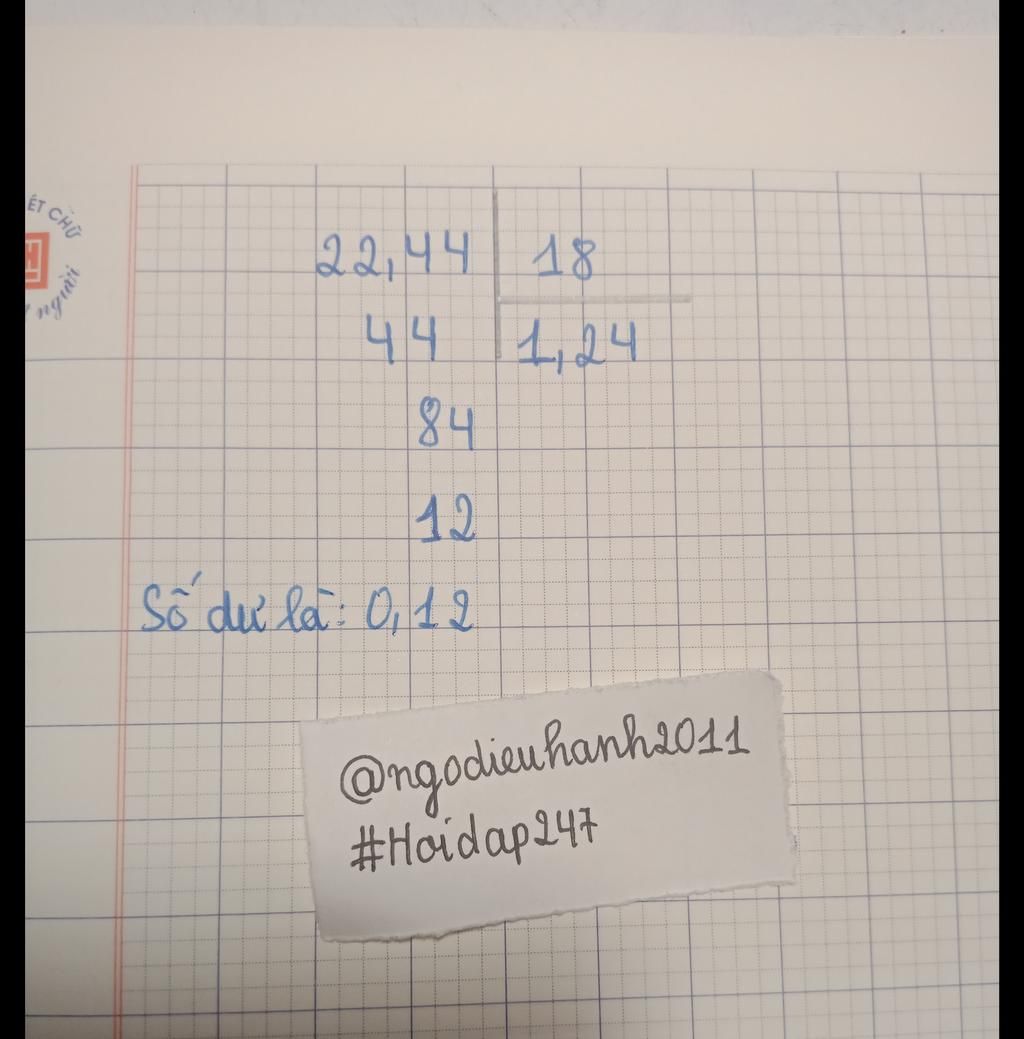 ẾT CHỮ
người
22,44 18
44 1,24
84
12
Số dư là: 0,12
@ngodieuhanh2011
#Hoidap247